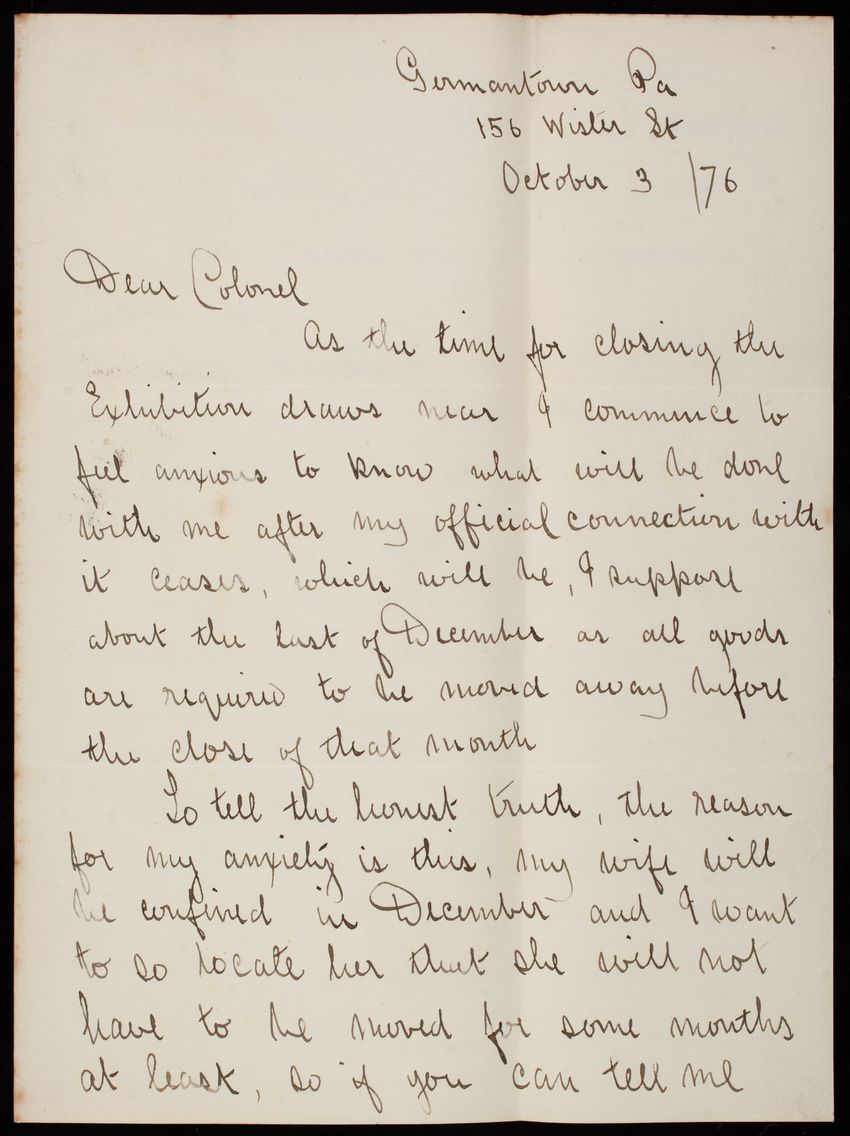 Germantown Pa
156 Wister St
October 3 /76
Dear Colonel
As the time for closing the
Exhibition draws near I commence to
feel anxious to know what will be done
with me after my official connection with
it ceases, which will be, I suppose
about the last of December as all goods
are required to be moved away before
the close of that month
To tell the honest truth, the reason
for my anxiety is this, my wife will
be confined in December and I want
to so locate her that she will not
have to be moved for some months
at least, so if you can tell me